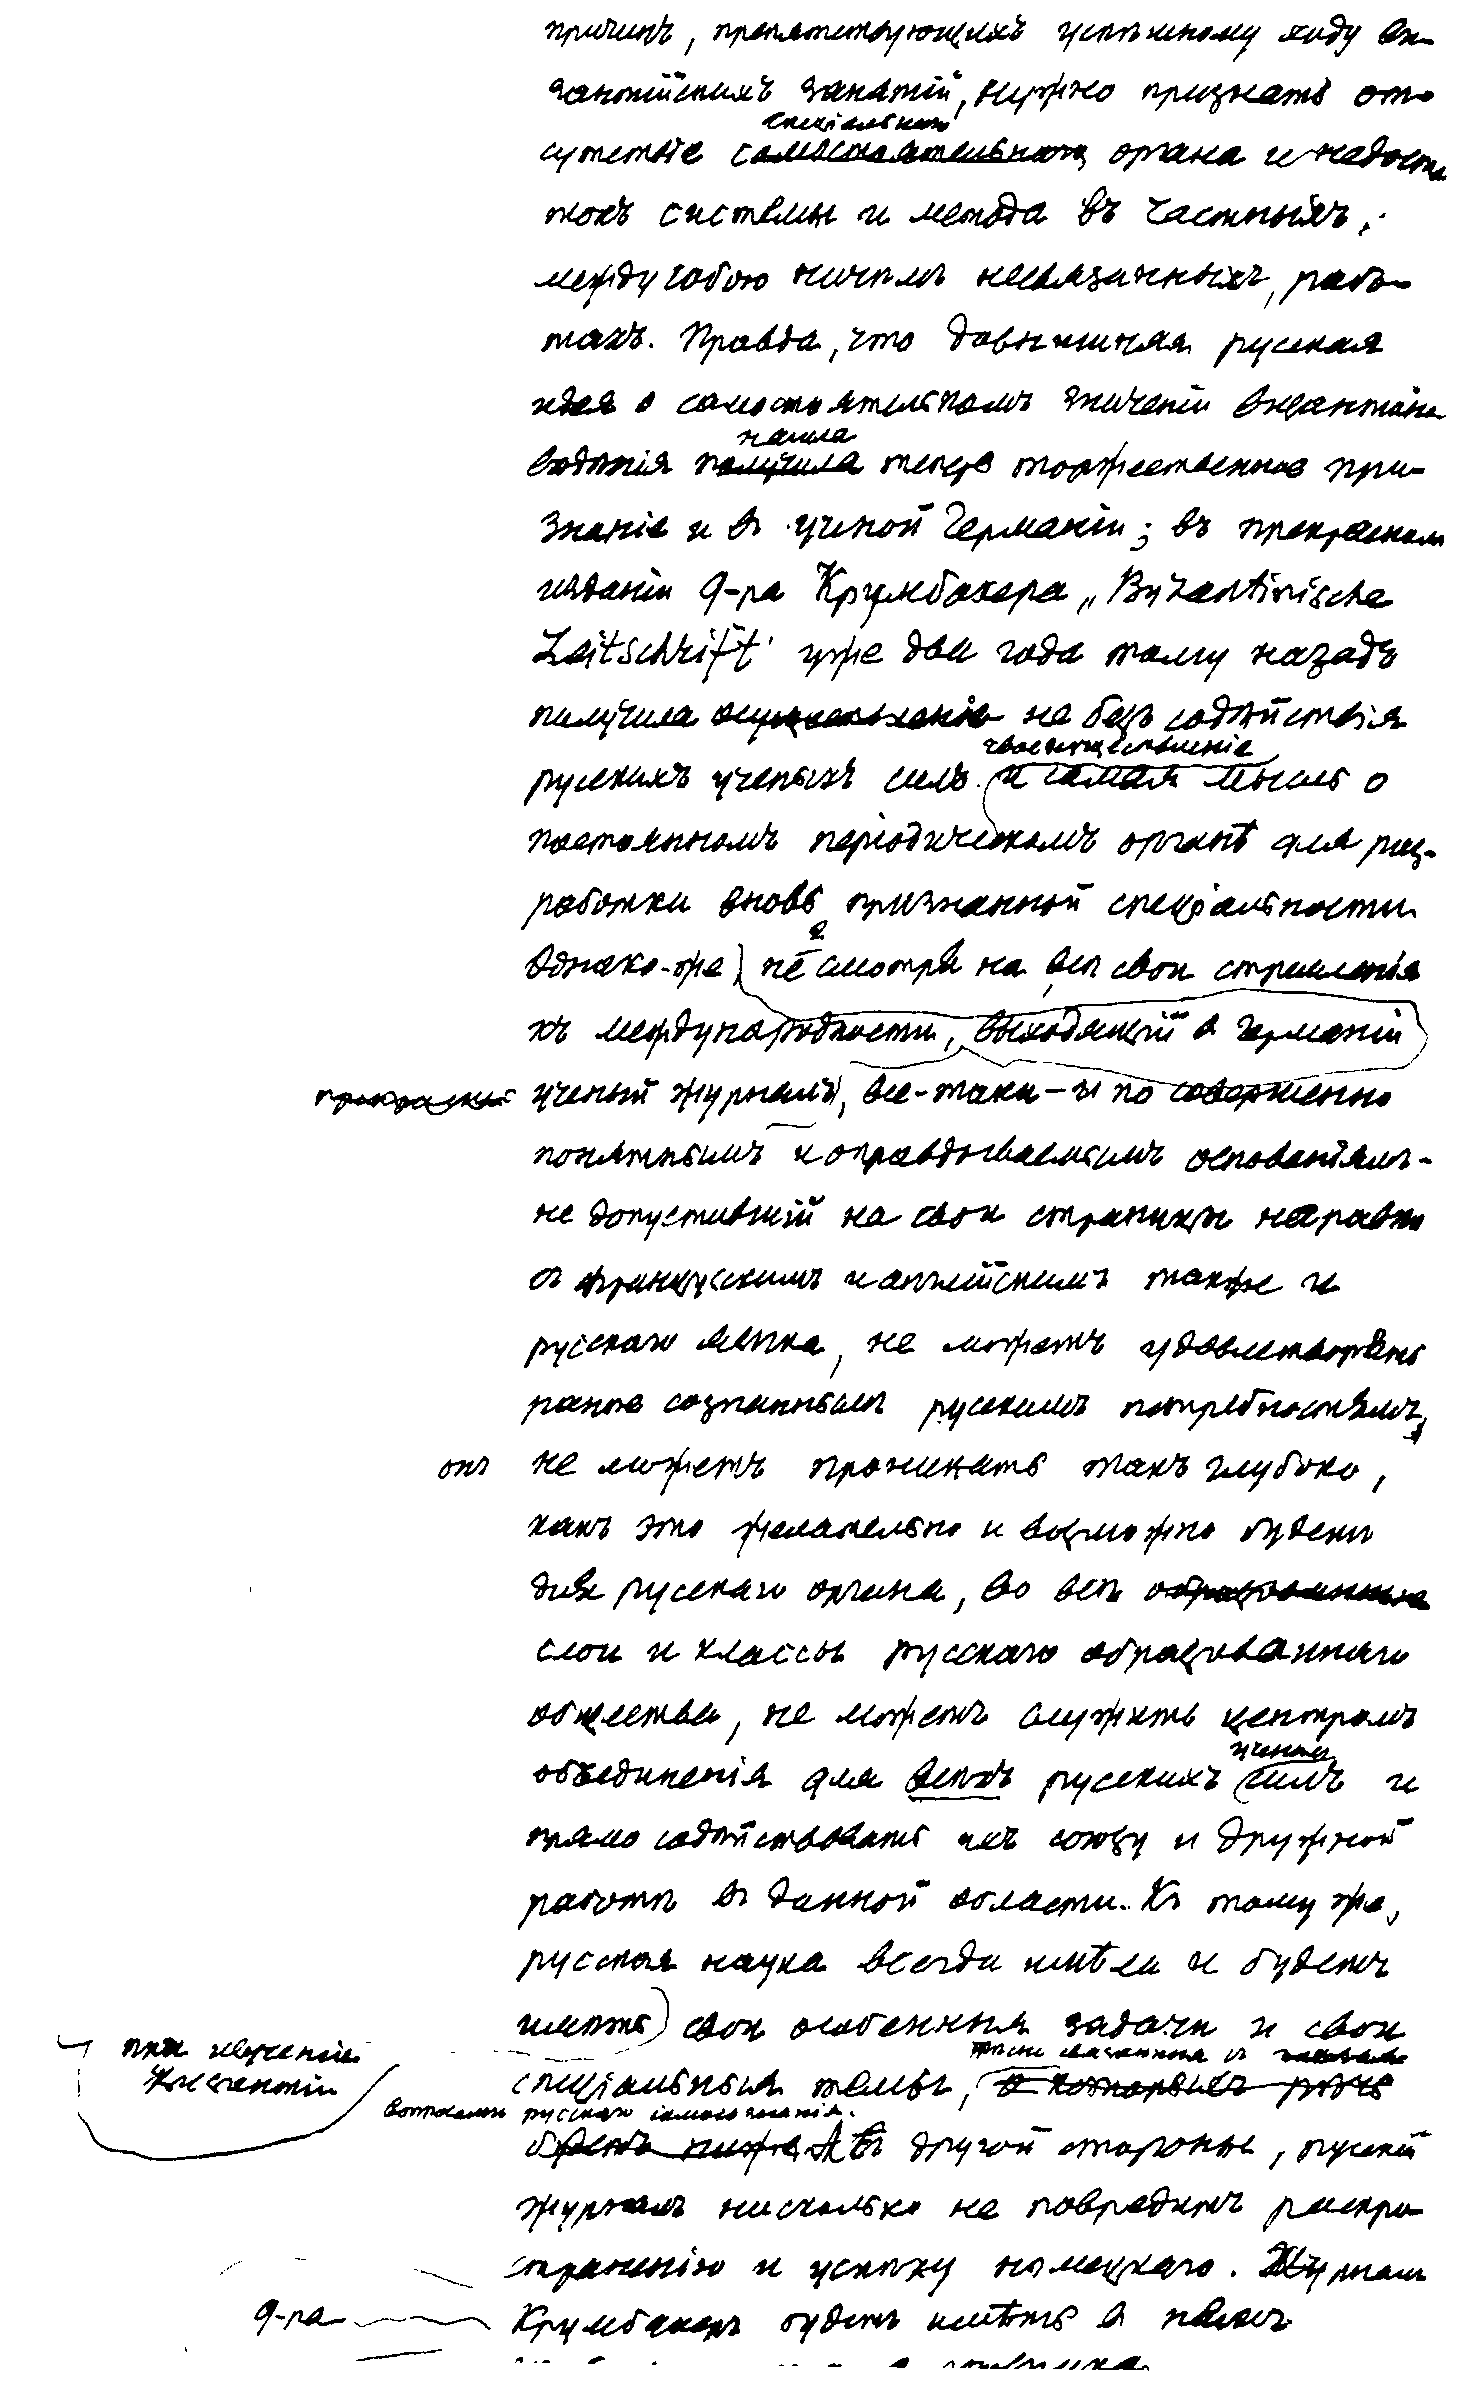 причинъ, препятствующихъ успѣшному ходу ви-
зантійскихъ занятій, нужно признать от-
спеціальнаго
сутствіе самостоятельнаго органа и недоста
токъ системы и метода въ частныхъ,
между собою ничѣмъ несвязанныхъ, рабо-
тахъ. Правда, что давнишняя русская
идея о самостоятельномъ значеніи византино
нашла
вѣдѣнія получила теперь торжественное при-
знаніе и въ ученой Германіи; въ прекрасномъ
изданіи д-ра Крумбахера „Byzantinische
Zeitschrift" уже два года тому назадъ
получила осуществленіе не безъ содѣйствія
свое осуществленіе
русскихъ ученыхъ силъ и самая мысль о
постоянномъ періодическомъ органѣ для раз-
работки вновь признанной спеціальности
Однако-же не смотря на всѣ свои стремленія
къ международности, выходящій въ Германіи
прекрасный ученый журналъ, все-таки - и по совершенно
понятнымъ и оправдываемымъ основаніямъ -
не допустившій на свои страницы наравнѣ
съ французскимъ и англійскимъ также и
русскаго языка, не можетъ удовлетворять
ранѣе сознаннымъ русскимъ потребностямъ,
онъ не можетъ проникать такъ глубоко,
какъ это желательно и возможно будетъ
для русскаго органа, во всѣ образованные
слои и классы русскаго образованнаго
общества, не можетъ служить центромъ
ученыхъ
объединенія для всѣхъ русскихъ силъ и
прямо содѣйствовать ихъ союзу и дружной
работѣ въ данной области. Къ тому же,
русская наука всегда имѣла и будетъ
имѣть свои особенныя задачи и свои
при изученіи
Византіи
тѣсно связанныя съ
спеціальныя темы, о которыхъ рѣчь
вопросами русскаго самосознанія.
будетъ ниже. Съ другой стороны, русскій
журналъ нисколько не повредитъ распро
страненію и успѣху нѣмецкаго. Журналъ
д-ра Крумбахера будетъ имѣть въ немъ